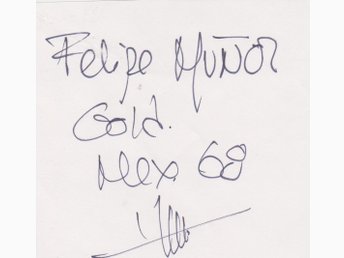 Felipe MUÑOZ
Gold.
Mex. 68